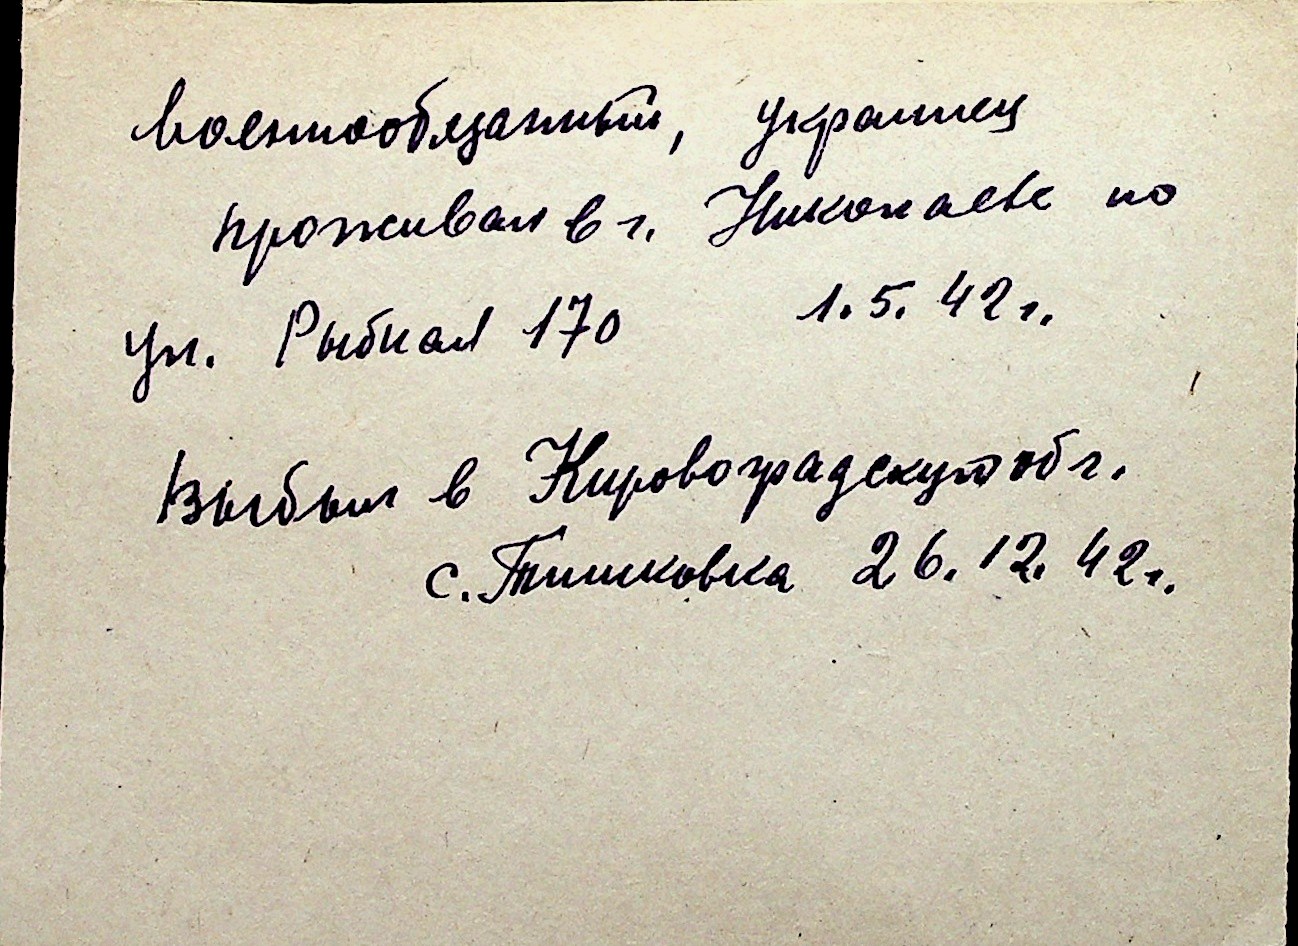 Военнообязанный, украинец
проживал в г. Николаеве по
ул. Рыбная 170 1.5.42г.
Выбыл в Кировоградскую обл.
с. Тишковка 26.12.42г.